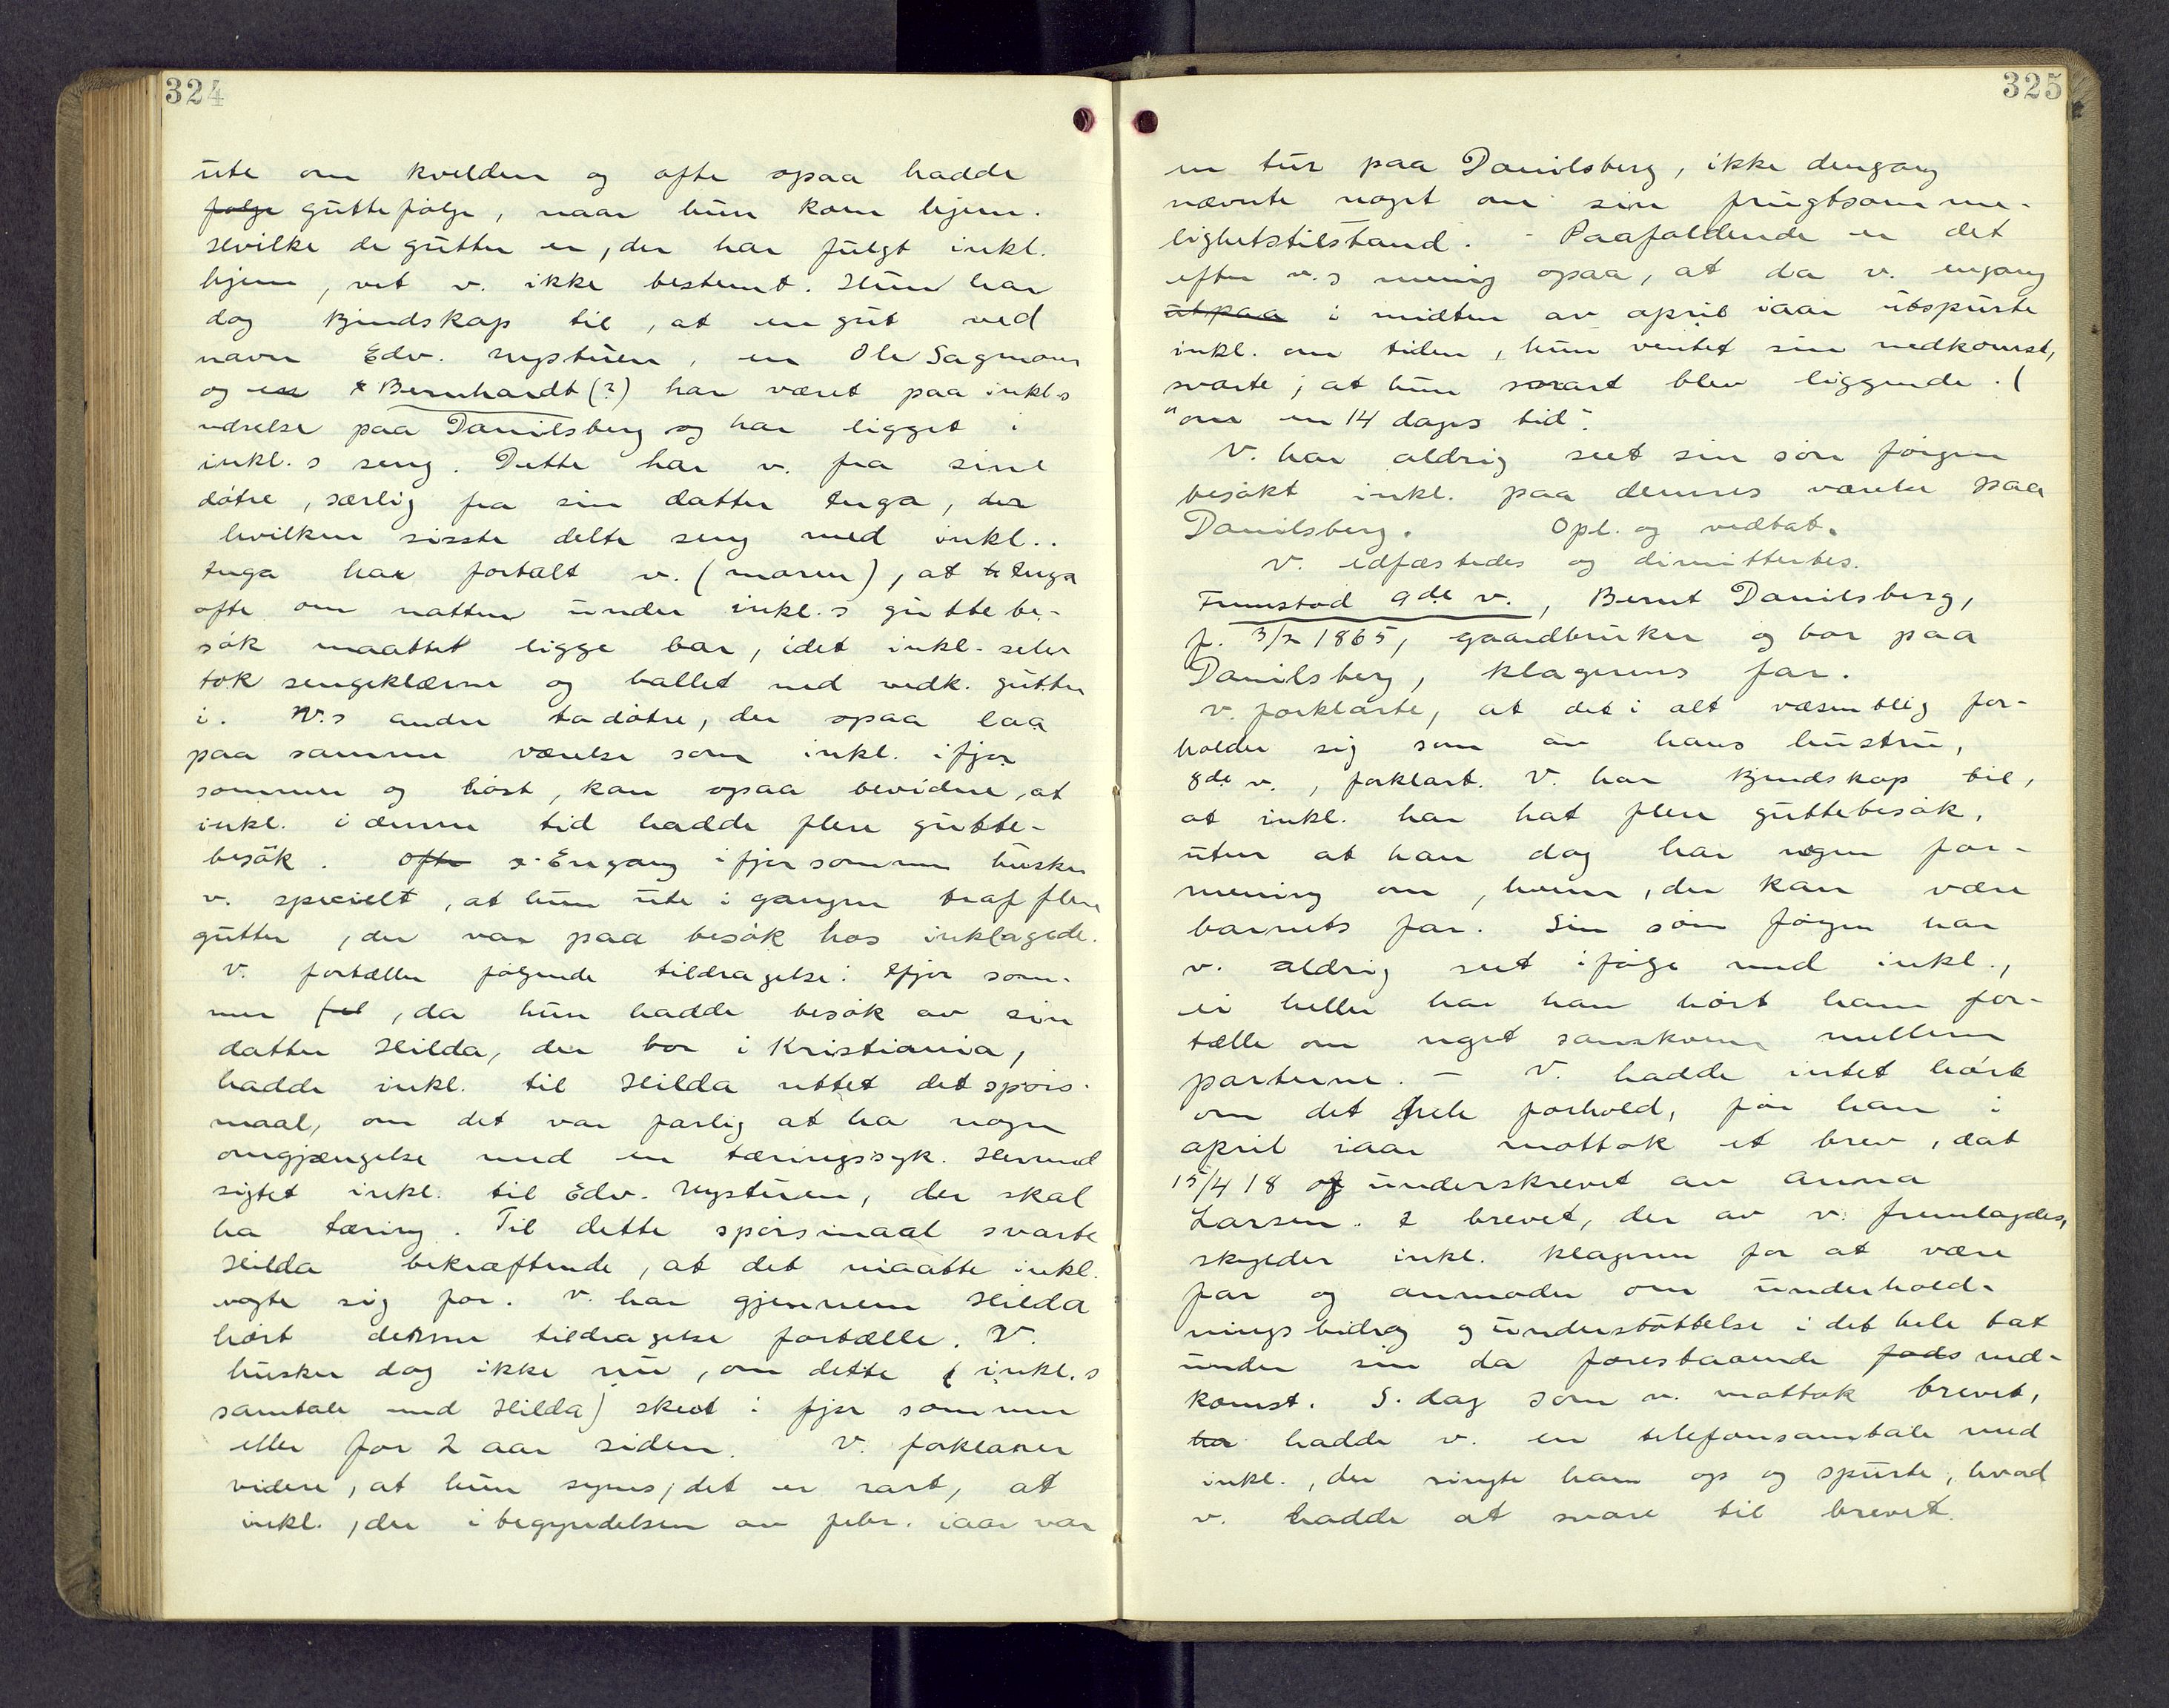 324
ute om kvelden og ofte ogsaa hadde
følge guttefølge, naar hun kom hjem.
Hvilke de gutter er, der har fulgt inkl.
hjem, vet v. ikke bestemt. Hun har
dog kjendskap til, at en gut ved
navn Edv. Nystuen, en Ole Sagmoen
og en Bernhardt (?) har været paa inkl.s
værelse paa Danilsberg og har ligget i
inkl.s seng. Dette har v. fra sine
døtre, særlig fra sin datter Inga, der
hvilken sisste delte seng med inkl..
Inga har fortalt v. (moren), at Inga
ofte om natten under inkl.s guttebe-
søk maattet ligge bar, idet inkl. selv
tok sengeklærne og ballet ned vedk. gutter
i. V.s andre to døtre, der ogsaa laa
paa samme værelse som inkl. ifjor
sommer og høst, kan ogsaa bevidne, at
inkl. i denne tid hadde flere gutte-
besøk. Ofte Engang ifjor sommer husker
v. specielt, at hun ute i gangen traf flere
gutter, der var paa besøk hos inklagede.
V. fortæller følgende tildragelse: Ifjor som-
mer, da hun hadde besøk av sin
datter Hilda, der bor i Kristiania,
hadde inkl. til Hilda rettet det spørs-
maal, om det var farlig at ha nogen
omgjængelse med en tæringssyk. Hermed
sigtet inkl. til Edv. Nystuen, der skal
ha tæring. Til dette spørsmaal svarte
Hilda bekræftende, at det maatte inkl.
vogte sig for. V. har gjennem Hilda
hørt denne tildragelse fortælle. V.
husker dog ikke nu, om dette (inkl.s
samtale med Hilda) skedt i fjor sommer
eller for 2 aar siden. V. forklarer
videre, at hun synes, det er rart, at
inkl., der i begyndelsen av febr. iaar var
325
en tur paa Danilsberg, ikke dengang
nævnte noget om sin frugtsomme-
lighetstilstand. - Paafaldende er det
efter v.s mening ogsaa, at da v. engang
utpaa i midten av april iaar utspurte
inkl. om tiden, hun ventet sin nedkomst,
svarte, at hun snart blev liggende. (
"om en 14 dages tid".
V. har aldrig seet sin søn Jørgen
besøkt inkl. paa dennes værelse paa
Danilsberg. Opl. og vedtat.
V. edfæstedes og dimittertes.
Fremstod 9de v., Bernt Danilsberg,
f. 3/2 1865, gaardbruker og bor paa
Danilsberg, klagerens far.
V. forklarte, at det i alt væsentlig for-
holder sig som av hans hustru,
8de v., forklart. V. har kjendskap til,
at inkl. har hat flere guttebesøk,
uten at han dog har nogen for-
mening om, hvem, der kan være
barnets far. Sin søn Jørgen har
v. aldrig seet ifølge med inkl.,
ei heller har han hørt ham for-
tælle om noget samkvem mellem
parterne. - V. hadde intet hørt
om det hele forhold, før han i
april iaar mottok et brev, dat
15/4 18 og underskrevet av Anna
Larsen. I brevet, der av v. fremlagdes,
skylder inkl. klageren for at være
far og anmoder om underhold-
ningsbidrag og understøttelse i det hele tat
under sin da forestaaende føds ned-
komst. S. dag som v. mottok brevet,
ha hadde v. en telefonsamtale med
inkl., der ringte ham op og spurte, hvad
v. hadde at svare til brevet.